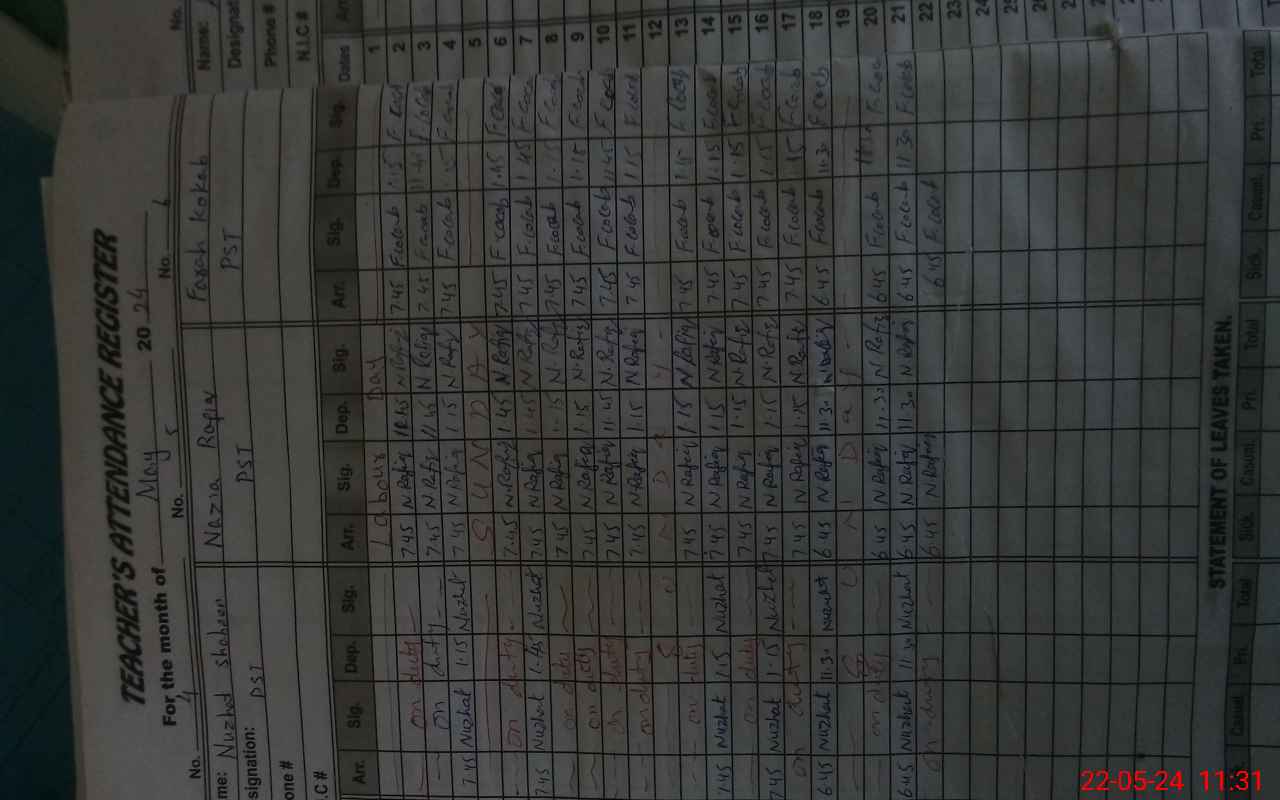 TEACHER'S ATTENDANCE REGISTER
For the month of May 20 24
No. 4 No. 5 No. 6
me: Nuzhat shaheen Nazia Rafiq Farah Kokab
signation: PST PST PST
one #
.C #
No.
Name:
Designat
Phone #
N.I.C #
Arr. Sig. Dep. Sig. Arr. Sig. Dep. Sig. Arr. Sig. Dep. Sig. Dates Arr
Labour Day 1
on duty 7.45 N Rafiq 11.45 N Rafiq 7.45 Fcocab 1.15 2
on duty 7.45 N Rafiq 11.45 N Rafiq 7.45 Fcocab 11.45 3
7.45 Nuzhat 1.15 Nuzhat 7.45 N Rafiq 1.15 N Rafiq 7.45 Fcocab 4
SUNDAY 5
on duty 7.45 N Rafiq 1.45 N Rafiq 7.45 Fcocab 1.45 6
7.45 Nuzhat 1.45 Nuzhat 7.45 N Rafiq 1.45 N Rafiq 7.45 Fcocab 1.45 Fcocab 7
on duty 7.45 N Rafiq 1.15 N Rafiq 7.45 Fcocab 1.15 8
on duty 7.45 N Rafiq 1.15 N Rafiq 7.45 Fcocab 1.15 Fcocab 9
on duty 7.45 N Rafiq 11.45 N Rafiq 7.45 Fcocab 11.45 Fcocab 10
on duty 7.45 N Rafiq 1.15 N Rafiq 7.45 Fcocab 1.15 Fcocab 11
S U N D A Y 12
on duty 7.45 N Rafiq 1.15 N Rafiq 7.45 Fcocab 1.15 Fcocab 13
7.45 Nuzhat 1.15 Nuzhat 7.45 N Rafiq 1.15 N Rafiq 7.45 Fcocab 1.15 Fcocab 14
on duty 7.45 N Rafiq 1.15 N Rafiq 7.45 Fcocab 1.15 Fcocab 15
7.45 Nuzhat 1.15 Nuzhat 7.45 N Rafiq 1.15 N Rafiq 7.45 Fcocab 1.15 Fcocab 16
on duty 7.45 N Rafiq 1.15 N Rafiq 7.45 Fcocab 1.15 Fcocab 17
6.45 Nuzhat 11.30 Nuzhat 6.45 N Rafiq 11.30 N Rafiq 6.45 Fcocab 11.30 Fcocab 18
S U N D a y 19
on duty 6.45 N Rafiq 11.30 N Rafiq 6.45 Fcocab 11.30 Fcocab 20
6.45 Nuzhat 11.30 Nuzhat 6.45 N Rafiq 11.30 N Rafiq 6.45 Fcocab 11.30 Fcocab 21
on duty 6.45 N Rafiq 6.45 Fcocab 22
23
24
25
STATEMENT OF LEAVES TAKEN.
Casual. Pri. Total Sick. Casual. Pri. Total Sick. Casual. Pri. Total
22-05-24 11:31